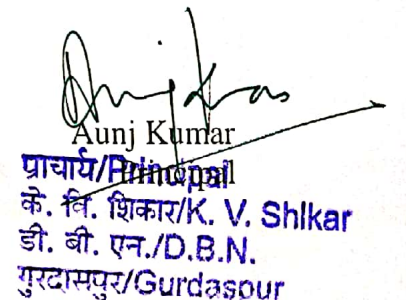 Aunj Kumar
प्राचार्य/Principal
Principal
के. वि. शिकार/K. V. Shikar
डी. बी. एन./D.B.N.
गुरदासपुर/Gurdaspur